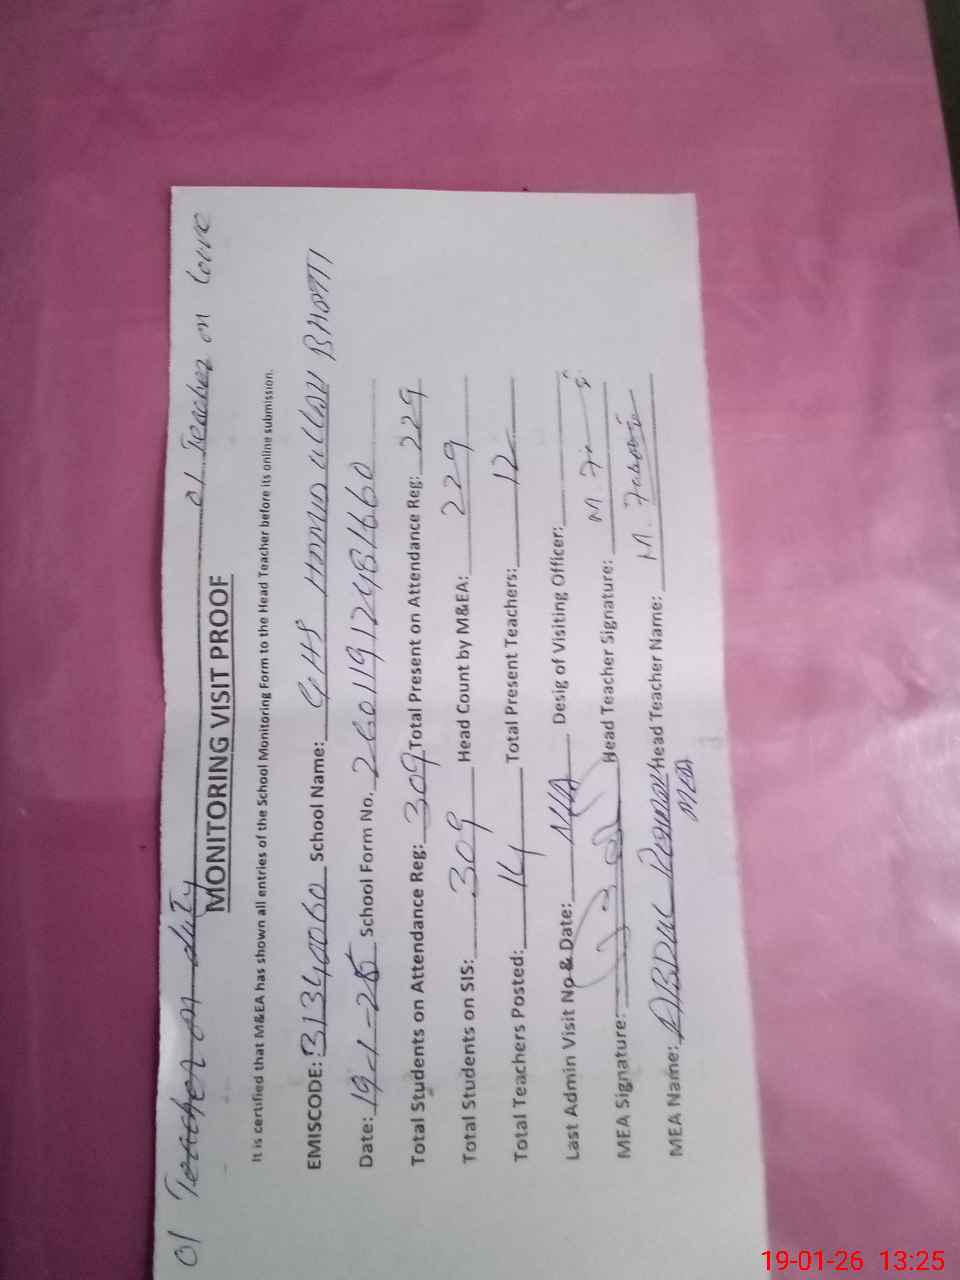 01 Teacher on duty 01 Teacher on leave
MONITORING VISIT PROOF
It is certified that M&EA has shown all entries of the School Monitoring Form to the Head Teacher before its online submission.
EMISCODE: 31340060 School Name: GHS HAMID ULLAH BHATTI
Date: 19-1-26 School Form No. 26011912481660
Total Students on Attendance Reg: 309 Total Present on Attendance Reg: 229
Total Students on SIS: 309 Head Count by M&EA: 229
Total Teachers Posted: 14 Total Present Teachers: 12
Last Admin Visit No & Date: N/A Desig of Visiting Officer:
MEA Signature: Head Teacher Signature: M
MEA Name: ABDUL REHMAN Head Teacher Name: M.
MEA
19-01-26 13:25